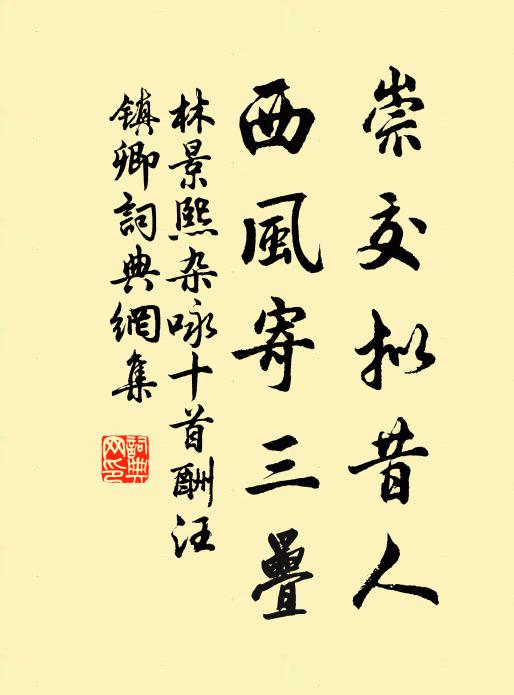 崇交拟昔人
西風寄三疊
林景熙杂咏十首酬汪
镇卿詞典網集
詞典
网印